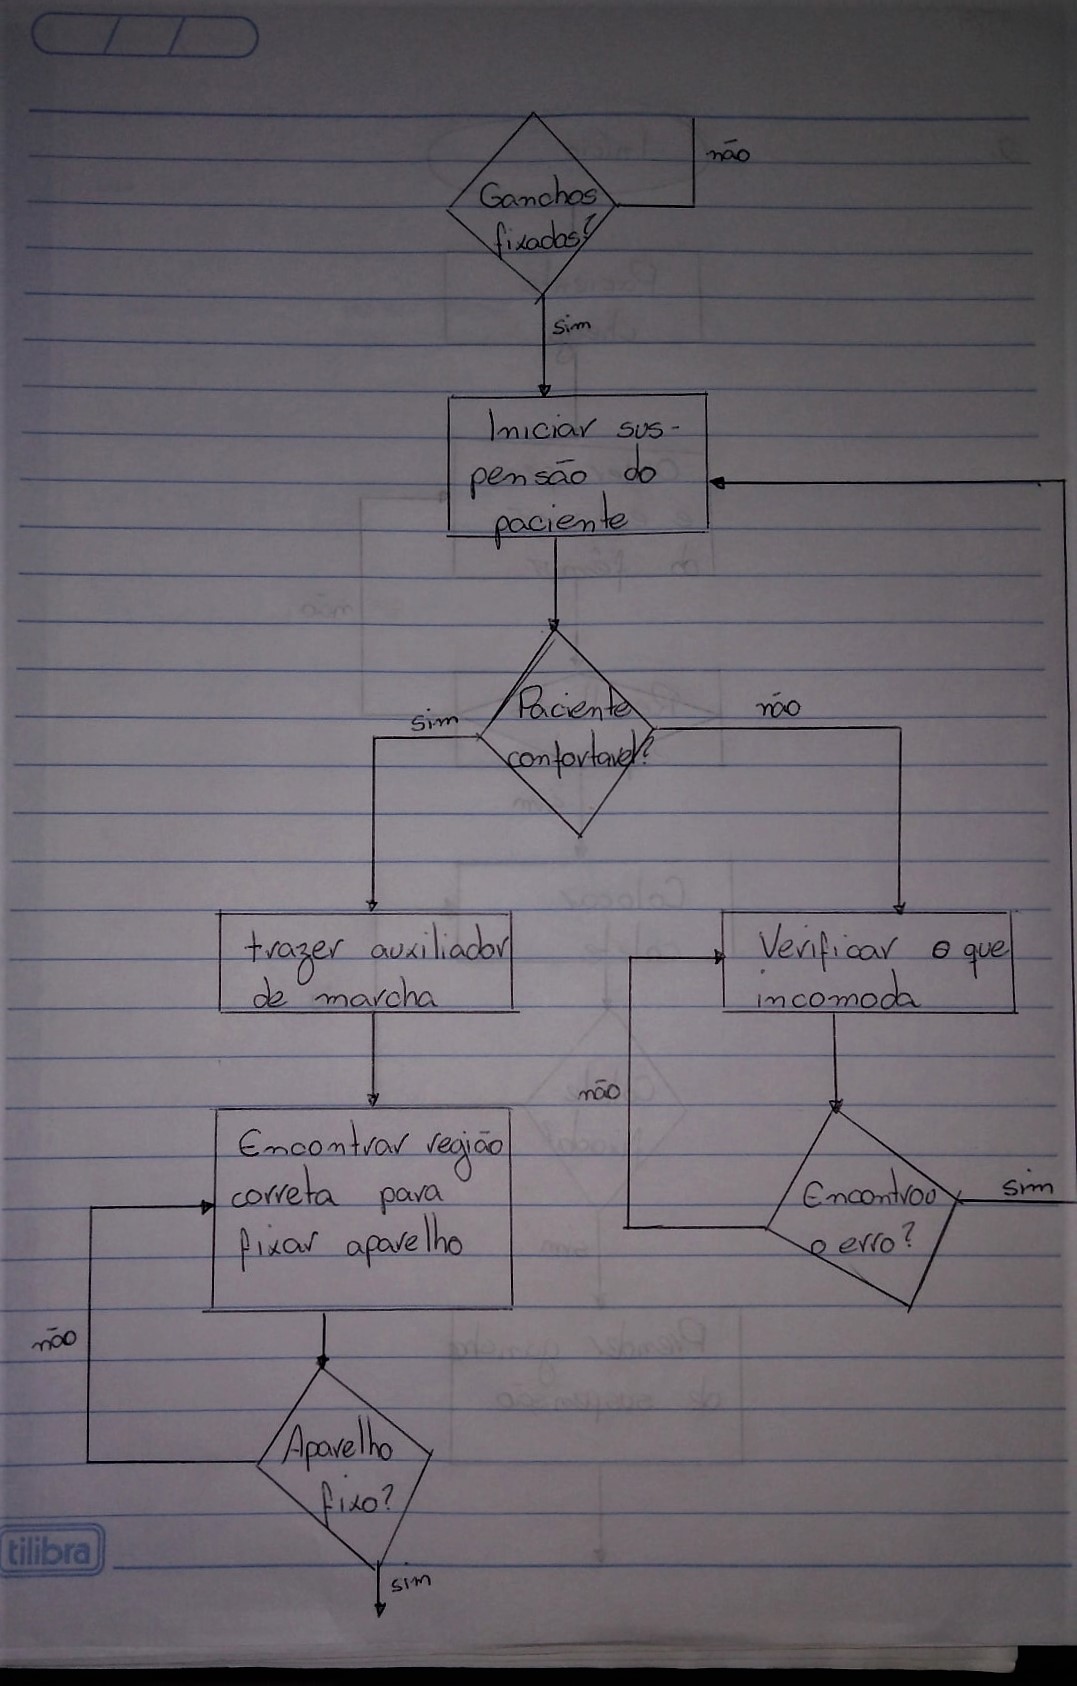 não
Ganchos
fixados?
sim
Iniciar sus-
pensão do
paciente
Paciente
confortavel?
sim
não
trazer auxiliador
de marcha
Verificar o que
incomoda
não
Encontrar região
correta para
fixar aparelho
Encontrou
o erro?
sim
não
Aparelho
fixo?
sim
tilibra